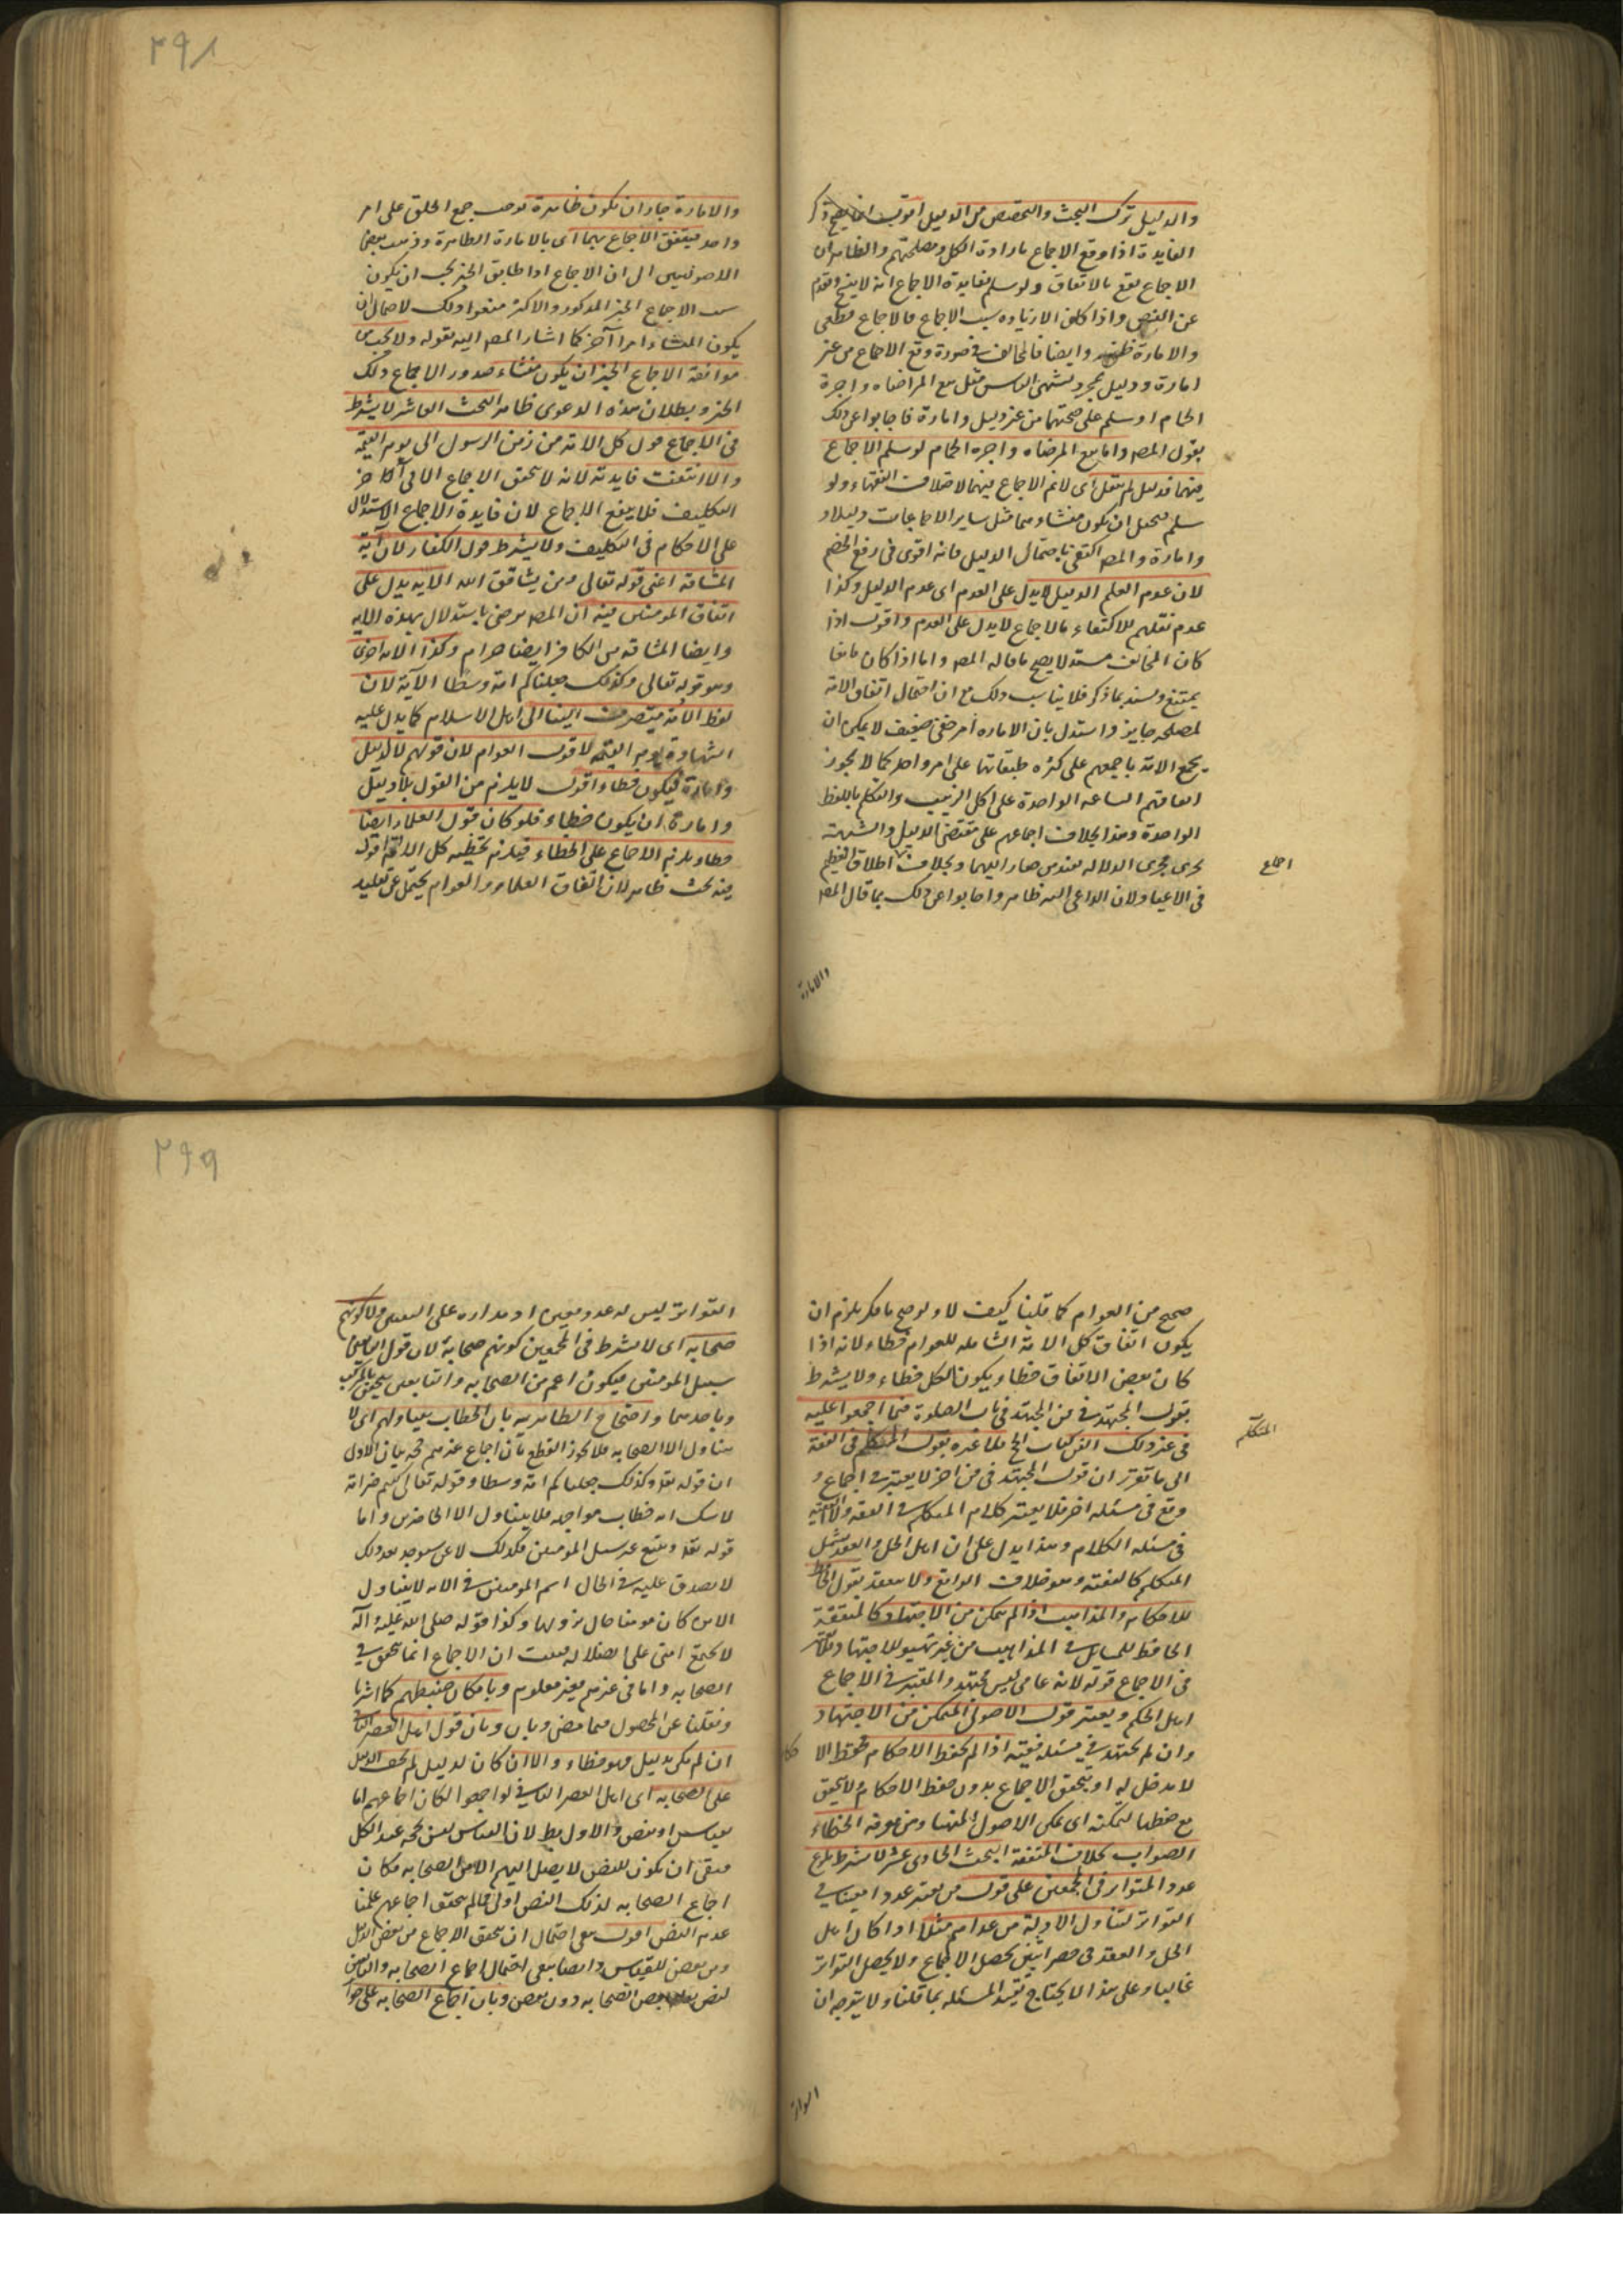 ٣٩٨
والدليل ترك البحث والتفحص من الدليل اقول
الفايدة اذا وقع الاجماع بارادة الكل ومصلحتهم والظاهر ان
الاجماع يقع بالاتفاق ولو سلم ففايدة الاجماع انه لا ينسخ
عن النص واذا كان سبب الاجماع فالاجماع قطعى
والامارة ظنية وايضا فالمخالف فى صورة وقع الاجماع من غير
امارة ودليل بمجرد مثل بيع المراضاه واجرة
الحمام او سلم على صحتهما من غير دليل وامارة فاجابوا عن ذلك
بقول المصـ واما بيع المرضاه واجرة الحمام لو سلم الاجماع
فيهما فدليل لم ينقل اى لا نم الاجماع فيهما لاختلاف الفقهاء ولو
سلم ان يكون منشاؤهما مثل ساير الاجماعات دليلا
وامارة والمصـ اكتفى باحتمال الدليل فانه اقوى فى دفع الخصم
لان عدم العلم الدليل لا يدل على العدم اى عدم الدليل وكذا
عدم نقلهم للاكتفاء بالاجماع لا يدل على العدم واقول اذا
كان المخالف مستدلا يصح ما قاله المصـ واما اذا كان مانعا
يمتنع وسند بما ذكر فلا يناسب ذلك مع ان احتمال اتفاق الامة
لمصلحه جايز واستدل بان الاماره امر خفى ضعيف لا يمكن ان
يجمع الامة باجمعهم على كثره طبقاتها على امر واحد كما لا يجوز
اتفاقهم الساعه الواحدة على اكل الزبيب والتكلم باللفظ
الواحدة وهذا بخلاف اجماعهم على مقتضى الدليل والشبهة
تجرى مجرى الدلالة عند من صار اليهما وبخلاف
فى الاعياد لان الداعى اليه ظاهر واجابوا عن ذلك بما قال المصـ
اجماع
والامارة
والامارة جاز ان تكون ظاهرة توجب جمع الخلق على امر
واحد فيتفق الاجماع بها اى بالامارة الظاهرة وذهب بعض
الاصوليين الى ان الاجماع اذا طابق الخبر يجب ان يكون
سبب الاجماع الخبر المذكور والاكثر منعوا ذلك لاحتمال ان
يكون المنشاء امرا آخر كما اشار المصـ اليه بقوله ولا يجب من
موافقة الاجماع الخبر ان يكون منشاء صدور الاجماع ذلك
الخبر وبطلان هذه الدعوى ظاهر البحث العاشر لا يشترط
فى الاجماع قول كل الامة من زمن الرسول الى يوم القيمة
والا انتفت فايدته لانه لا يتحقق الاجماع الا فى آخر
التكليف فلا ينفع الاجماع لان فايدة الاجماع الاستدلال
على الاحكام فى التكليف ولا يشترط قول الكفار لان آية
المشاقة اعنى قوله تعالى ومن يشاقق الله الايه يدل على
اتفاق المؤمنين فيه ان المصـ مرضى باستدلال بهذه الايه
وايضا المشاقه من الكافر ايضا حرام وكذا الايه اخرى
وهو قوله تعالى وكذلك جعلناكم امة وسطا الآية لان
لفظ الامة ينصرف الينا الى اهل الاسلام كما يدل عليه
الشهادة يوم القيمة لا قول العوام لان قولهم لا لدليل
وامارة فيكون خطاء واقول لا يلزم من القول بلا دليل
وامارة ان يكون خطاء فلو كان قول العلماء ايضا
خطاء يلزم الاجماع على الخطاء فيلزم تخطيه كل الامة اقول
فيه بحث ظاهر لان اتفاق العلماء والعوام يحتمل عن تقليد
٣٩٩
صحيح من العوام كما قلنا كيف لا ولو صح ما ذكر يلزم ان
يكون اتفاق كل الامة الشامله للعوام خطاء لانه اذا
كان بعض الاتفاق خطا ويكون الكل خطاء ولا يشترط
بقول المجتهد فى فن المجتهد فى باب الصلوة فيما اجمعوا عليه
فى غير ذلك الفن بقول المتكلم فى الفقة
الى ما تقرر ان قول المجتهد فى فن اخر لا يعتبر فى اجماع
وقع فى مسئله اخر فلا يعتبر كلام المتكلم فى الفقه
فى مسئله الكلام وهذا يدل على ان اهل الحل والعقد يشمل
المتكلم كالفقيه وهو خلاف الواقع ولا يعتقد بقول الحافظ
للاحكام والمذاهب اذا لم يتمكن من الاجتهاد كالمتفقة
الحافظ للمسايل فى المذاهب من غير تهيؤ للاجتهاد
فى الاجماع قوله لانه عامى ليس مجتهد والمعتبر فى الاجماع
اهل الحكم ويعتبر قول الاصولى المتمكن من الاجتهاد
وان لم يجتهد فى مسئله فقهية اذا لم يحفظ الاحكام
لا مدخل له او يتحقق الاجماع بدون حفظ الاحكام ولا يتحقق
مع حفظها لتمكنه اى تمكن الاصولى ومن معرفة الخطاء
الصواب بخلاف المتفقة البحث الحادى عشر لا يشترط بلوغ
عدد المتواتر فى المجمعين على قول من يعتبر عددا معينا فى
التواتر لتناول الادلة من عداهم مثلا اذا كان اهل
الحل والعقد فى حصر اثنين يحصل الاجماع ولا يحصل التواتر
غالبا وعلى هذا لا يحتاج تقييد المسئله بما قلنا ولا يتوجه ان
المتكلم
التواتر
التواتر ليس له عدد معين اذ مداره على اليقين ولا كونهم
صحابه اى لا يشترط فى المجمعين كونهم صحابة لان قول
سبيل المؤمنين فيكون اعم من الصحابه والتابعين
وباحدهما واحتجاج الظاهريه بان الخطاب يتناولهم اى لا
يتناول الا الصحابه فلا يجوز القطع بان اجماع غيرهم حجه بيان الاول
ان قوله تعا وكذلك جعلناكم امة وسطا وقوله تعالى كنتم خير امة
لا شك انه خطاب مواجهه فلا يتناول الا الحاضرين واما
قوله تعا ويتبع غير سبيل المؤمنين فكذلك لان من سيوجد بعد ذلك
لا يصدق عليه فى الحال اسم المؤمنين فى الايه لا يتناول
الا من كان مؤمنا حال نزولها وكذا قوله صلى الله عليه وآله
لا تجتمع امتى على الضلاله فثبت ان الاجماع انما يتحقق فى
الصحابه واما فى غيرهم فغير معلوم وبامكان ضبطهم كما اشرنا
ونقلنا عن المحصول فيما مضى وبان وبان قول اهل العصر الثانى
ان لم يكن بدليل فهو خطاء والا ان كان لدليل لم يخف الدليل
على الصحابه اى اهل العصر الثانى لو اجمعوا لكان اجماعهم اما
بقياس او بنص والاول بط لان القياس ليس بحجه عند الكل
فبقى ان يكون للنص لا يصل اليهم الا من الصحابه فكان
اجماع الصحابه لذلك النص اولى فلما لم يتحقق اجماعهم علمنا
عدم النص اقول بقى احتمال ان يتحقق الاجماع من بعض الدليل
ومن بعض للقياس وايضا بقى احتمال اجماع الصحابه والتابعين
لنص بعض الصحابه دون بعض وبان اجماع الصحابه على جواز